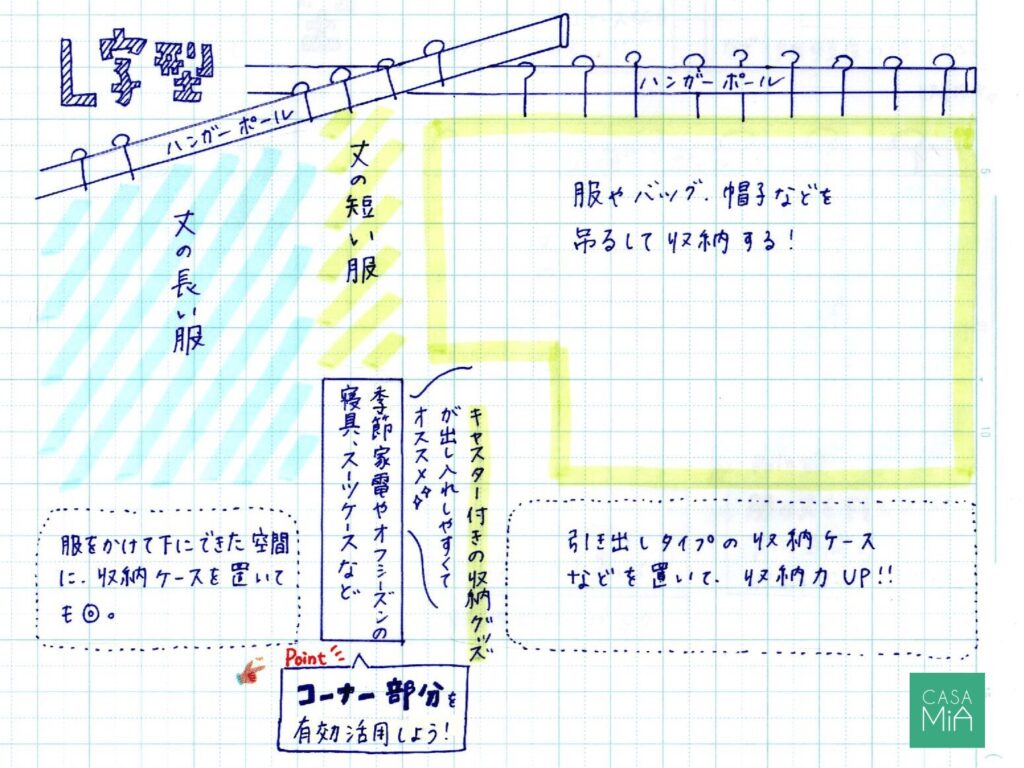 L字型
ハンガーポール
ハンガーポール
丈の長い服
丈の短い服
服やバッグ、帽子などを
吊るして収納する!
季節家電やオフシーズンの
寝具、スーツケースなど
キャスター付きの収納グッズ
が出し入れしやすくて
オススメ
服をかけて下にできた空間
に、収納ケースを置いて
も◎。
引き出しタイプの収納ケース
などを置いて、収納力UP!!
Point
コーナー部分を
有効活用しよう!
CASA
MiA